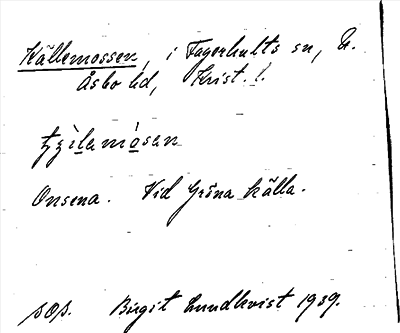 Källemossen, i Fagerhults sn, N.
Åsbo hd, Krist. l.
Onsena. Vid Gröna källa.
SOS. Birgit Lundkvist 1939.